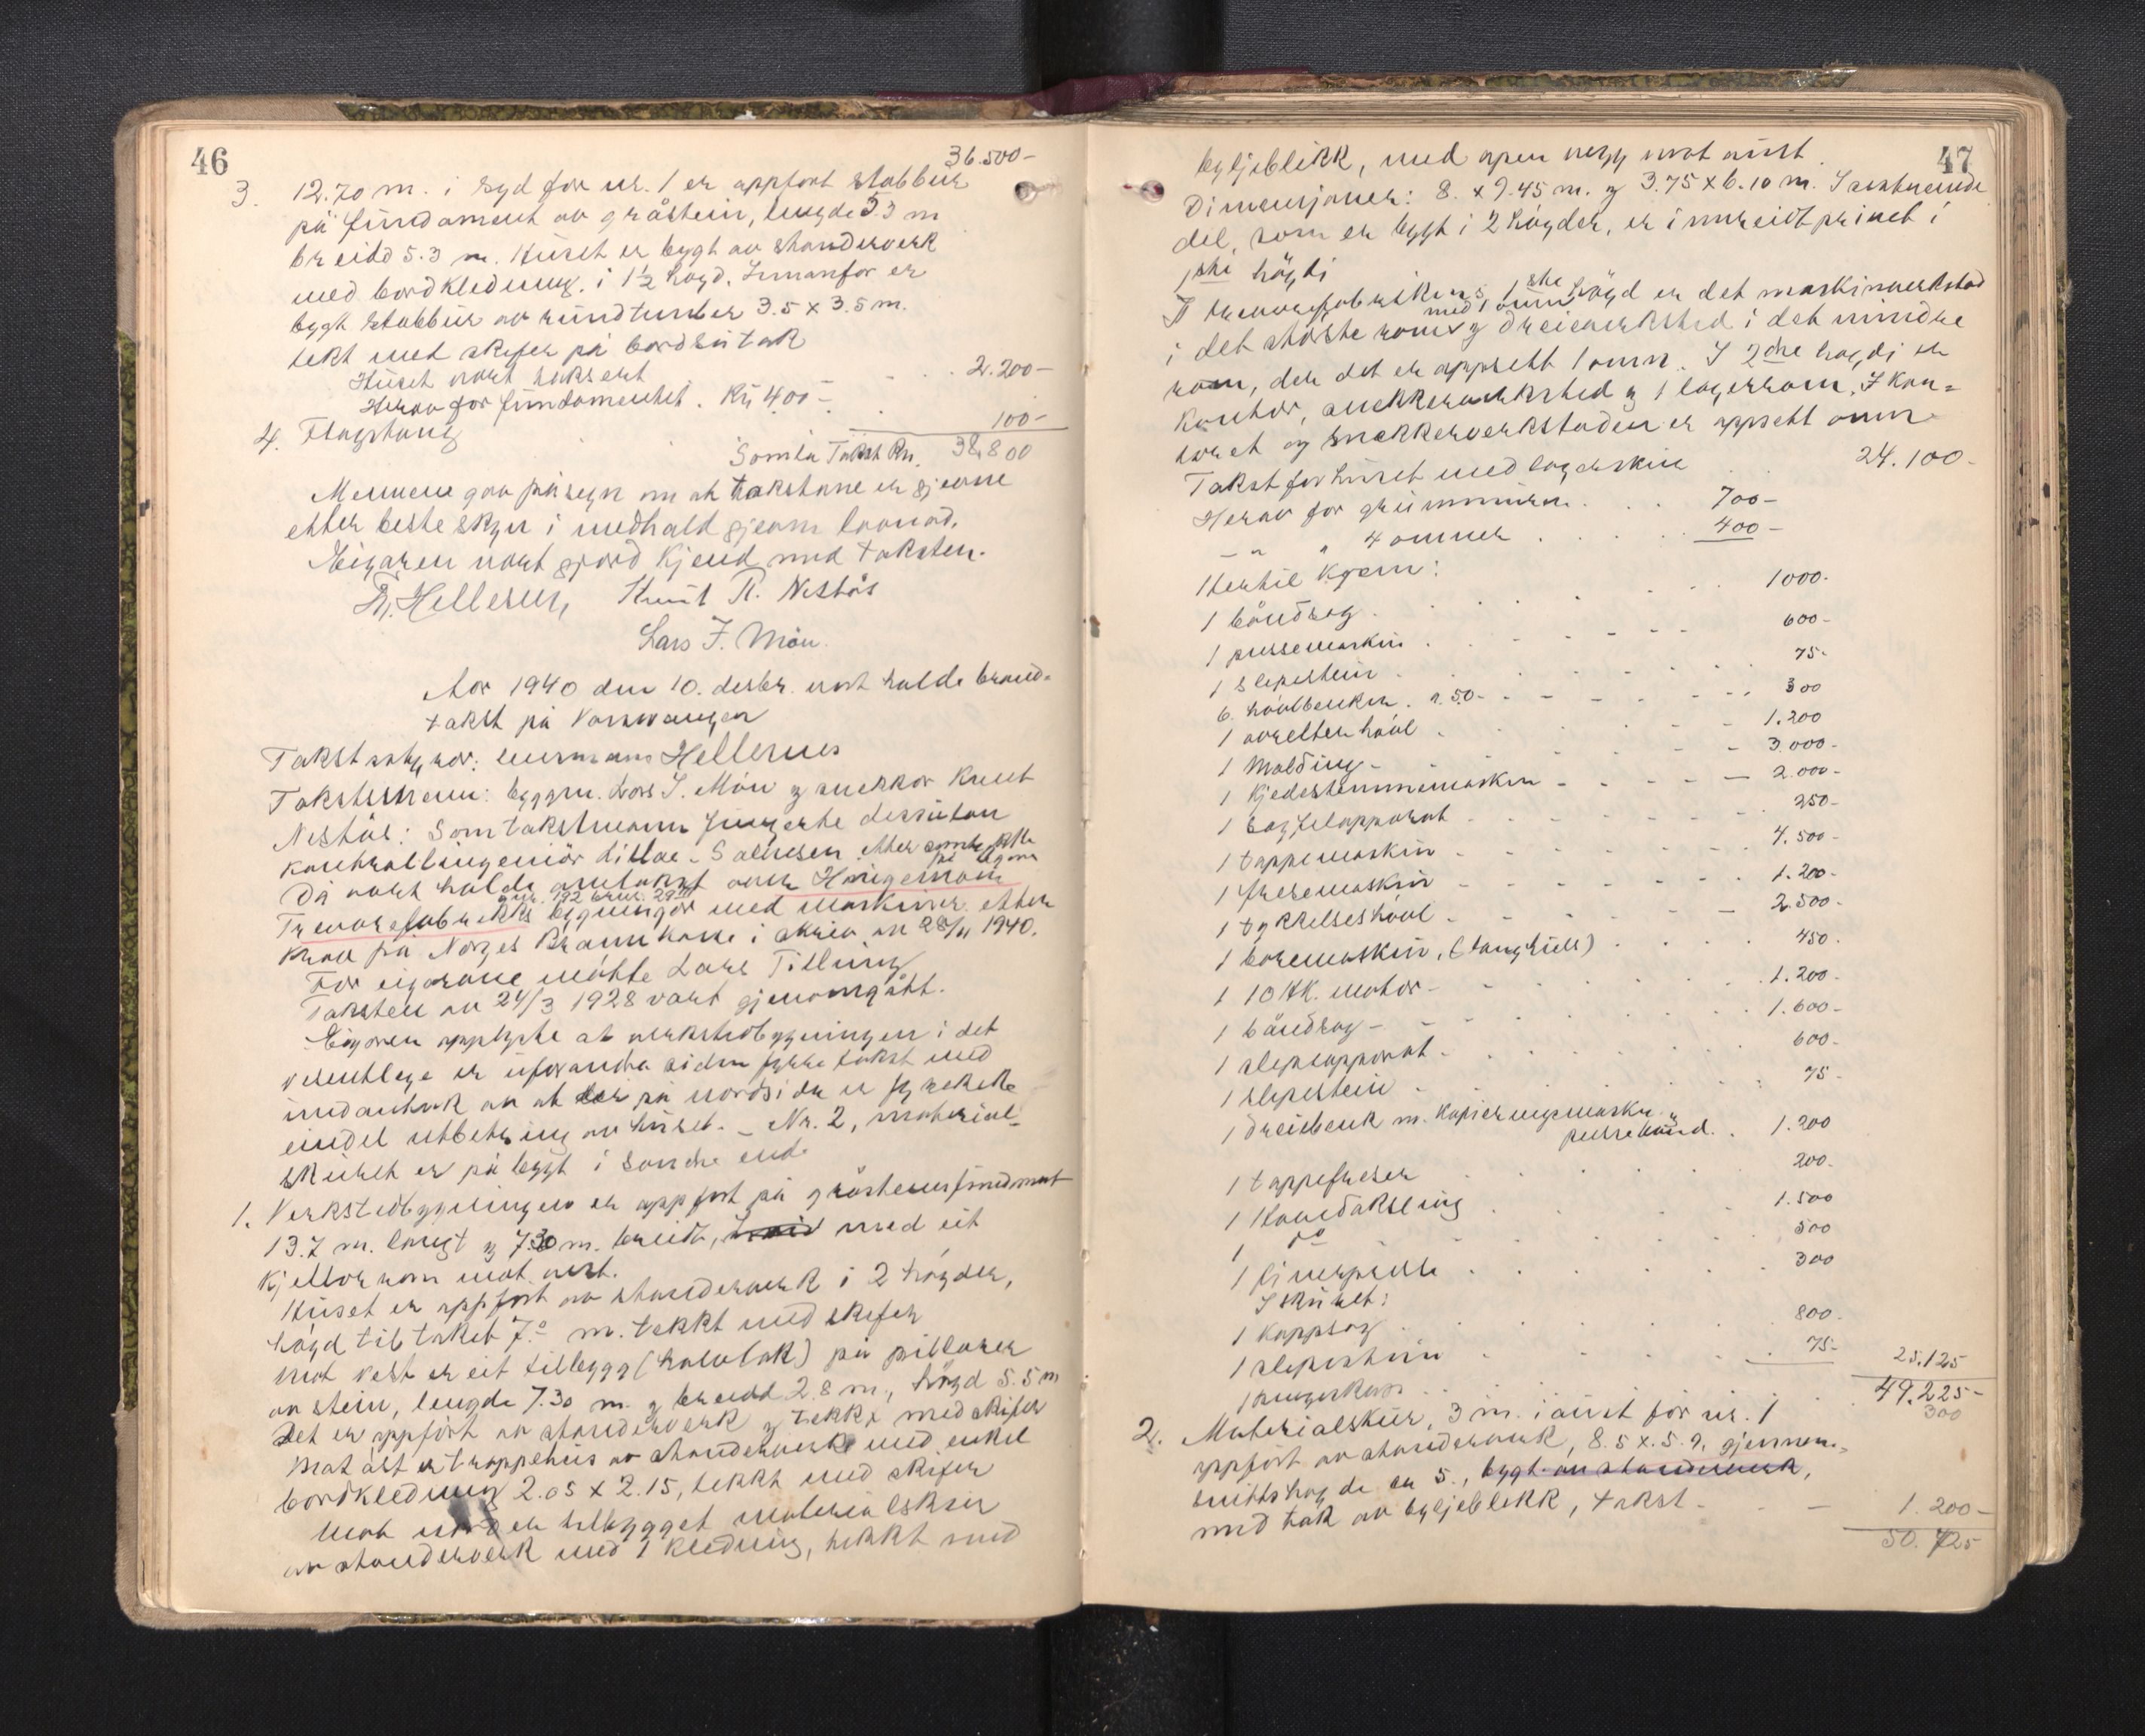 46
36.500-
3. 12.70 m. i syd for nr. 1 er oppført stabbur
på fundament av gråstein, lengde 5.3 m
breidd 5.3 m. Huset er bygt av standerverk
med bordkledning. i 1½ høgd. Innanfor er
bygt stabbur av rundtimber 3.5 x 3.5 m.
tekt med skifer på bordsutak
Huset vart taksert . . . 2.200-
Herav for fundamentet. Kr 400-
4. Flagstong . . 100-
Samla Takst Kr. 38.800
Mennene gav påsegn om at takstane er gjevne
etter beste skyn i medhald gjevne lovnad.
Eigaren vart gjord kjend med taksten.
Hellesnes, Knut R. Nestås
Lars J. Møn.
Aar 1940 den 10. desbr. vart halde brand-
takst på Vossevangen
Takststyrar: lensmann Hellesnes
Takstsmenn: byggm. Lars J. Møn og snekkar Knut
Nestås: Som takstmann fungerte dessutan
kontrollingeniør Salvesen. etter
Då vart halde omtakst over Haugemoen
Trevarefabrikks bygningar med maskiner etter
gnr. 192 brnr. 29
krav på Norges Brannkasse i skriv av 28/11 1940.
For eigarane møtte Lars Tillung
Taksten av 24/3 1928 vart gjenomgått.
Eigaren opplyste at verkstedbygningen i det
vesentlege er uforandra siden fyrre takst med
undantak av at der på nordsida er
eindel utbetring av huset. - Nr. 2, material-
skuret er på bygt i søndre ende
1. Verkstedbygningen er oppført på gråsteinsfundment
13.7 m. langt og 7.30 m. breidt, med eit
kjellarrom mot vest.
Huset er oppført av standerverk i 2 høgder,
høgd til taket 7.- m. tekkt med skifer
mot vest er eit tillegg (halvtak) på pillarer
av stein, lengde 7.30 m. og breidd 2.8 m., høgd 5.5 m
Det er oppført av standerverk og tekkt med skifer
Mot øst er trappehus av standerverk med enkel
bordkledning 2.05 x 2.15, tekkt med skifer
Mot nord er tilbygget materialskur
av standerverk med 1 kledning, tekkt med
47
bylgjeblikk, med open vegg mot aust.
Dimensjoner: 8. x 9.45 m. og 3.75 x 6.10 m. I sistnemde
del, som er bygt i 2 høgder, er innreidt i
1ste høgdi
I trevarefabrikkens 1ste høgd er det maskinverkstad
i det største rom med 1 omn og dreieverksted i det mindre
rom, der det er oppsett 1 omn. I 2dre høgdi er
kontor, snekkerverksted og 1 lagerrom. I kon-
toret og snekkerverkstaden er oppsett omn
Takst for huset med . . 24.100-
Herav for grunnmuren . . . 700-
- " " 4 omner . . . . 400-
Hertil kjem:
1 båndsag . . . . . . 1000.
1 pussemaskin . . . . . . 600-
1 slipestein . . . . . . 75-
6. høvlbenker. a 50- . . . . . 300
1 avretter høvl . . . . . . 1.200
1 Molding - . . . . . 3.000-
1 kjedestemmemaskin - - - - - 2.000-
1 sagfilapparat . . . . . . 250-
1 tappemaskin - - - - - - 4.500-
1 fresemaskin - - - - - - 1.200-
1 tykkelseshøvl - - - - - - 2.500-
1 boremaskin, (langhull) . . . . 450.
1 10 HK. motor - - - - - . 1.200-
1 båndsag - - - - - . 1.600-
1 slipeapparat . . . . . . 600-
1 slipestein - . . . . . 75-
1 dreiebenk m. kopieringsmaskin og
pussebånd. . 1.200
1 tappefreser . . . . . 200-
1 Hovedaksling . . . . . 1.500
1 do . . . . . 500
1 finerpresse . . . . . 300
I skuret:
1 kappsag . . . . . 800.
1 slipestein . . . . . 75-
25.125
49.225-
300
2. Materialskur, 3 m. i aust for nr. 1
oppført av standerverk, 8.5 x 5.9, gjennom-
snittshøgde er 5., bygt av standerverk,
med tak av bylgjeblekk, takst - - - 1.200-
50.725